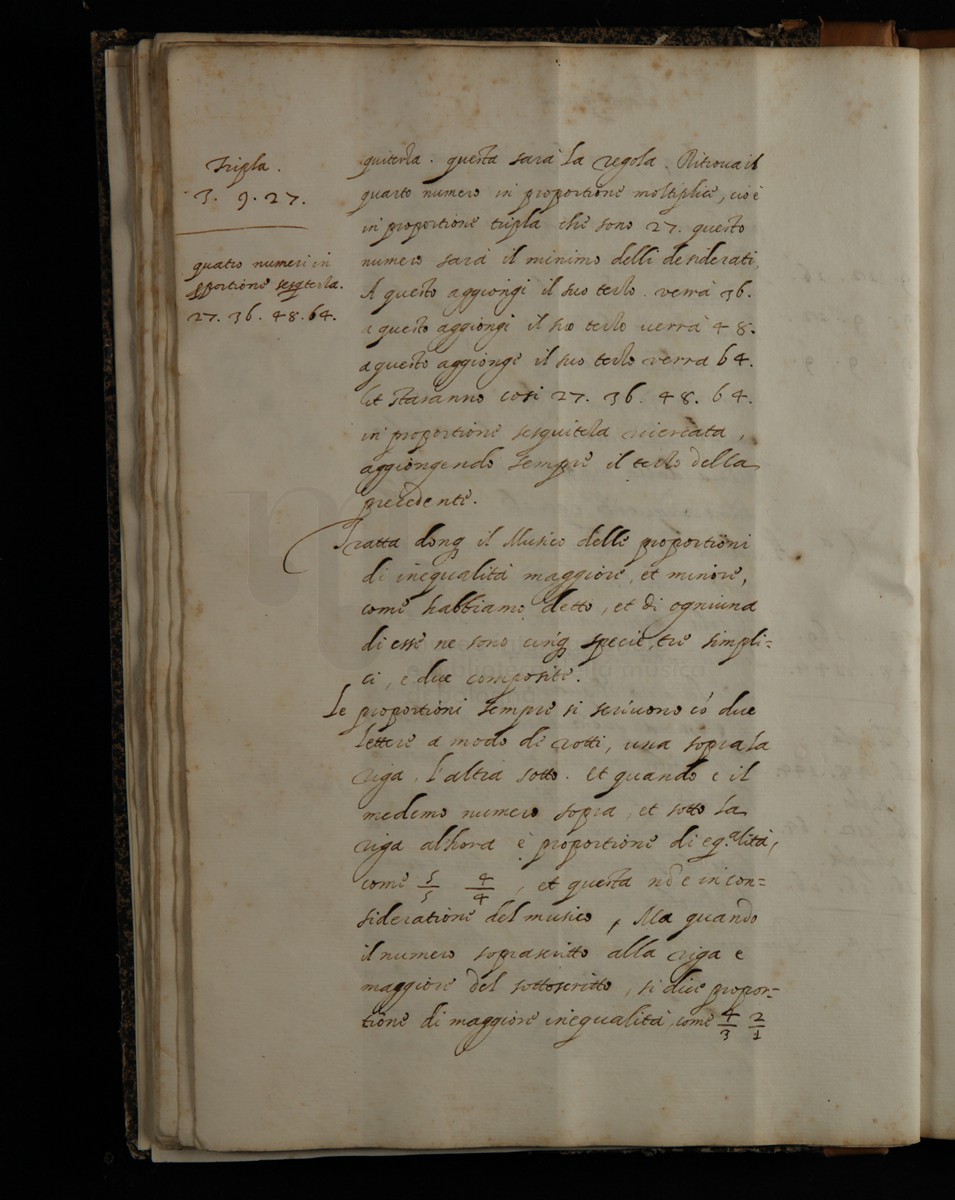 Tripla.
3. 9. 27.
quatro numeri in
pportione sesqterza.
27. 36. 48. 64.
quiterza. questa sarà la regola. Ritrova il
quarto numero in proportione moltiplice, cio è
in proportione tripla che sono 27. questo
numero sarà il minimo delli desiderati,
A questo aggiongi il suo terzo verrà 36.
a questo aggiongi il suo terzo verrà 48.
a questo aggionge il suo terzo verrà 64.
Et staranno cosi 27. 36. 48. 64.
in proportione sesquiterza ricercata,
aggiongendo sempre il terzo della
precedente.
Tratta donq il Musico delle proportioni
di inequalità maggiore, et minore,
come habbiamo detto, et di ogniuna
di esse ne sono cinq specie, tre simpli=
ci, e due composite.
Le proportioni sempre si scrivono cō due
lettere a modo di rotti, una sopra la
riga, l'altra sotto. Et quando è il
medemo numero sopra, et sotto la
riga alhora è proportione di eq.alità,
come 5/5 4/4, et questa nō è in con=
sideratione del musico, Ma quando
il numero soprascritto alla riga è
maggiore del sottoscritto, si dice propor=
tione di maggiore inequalità, come 4/3 2/1